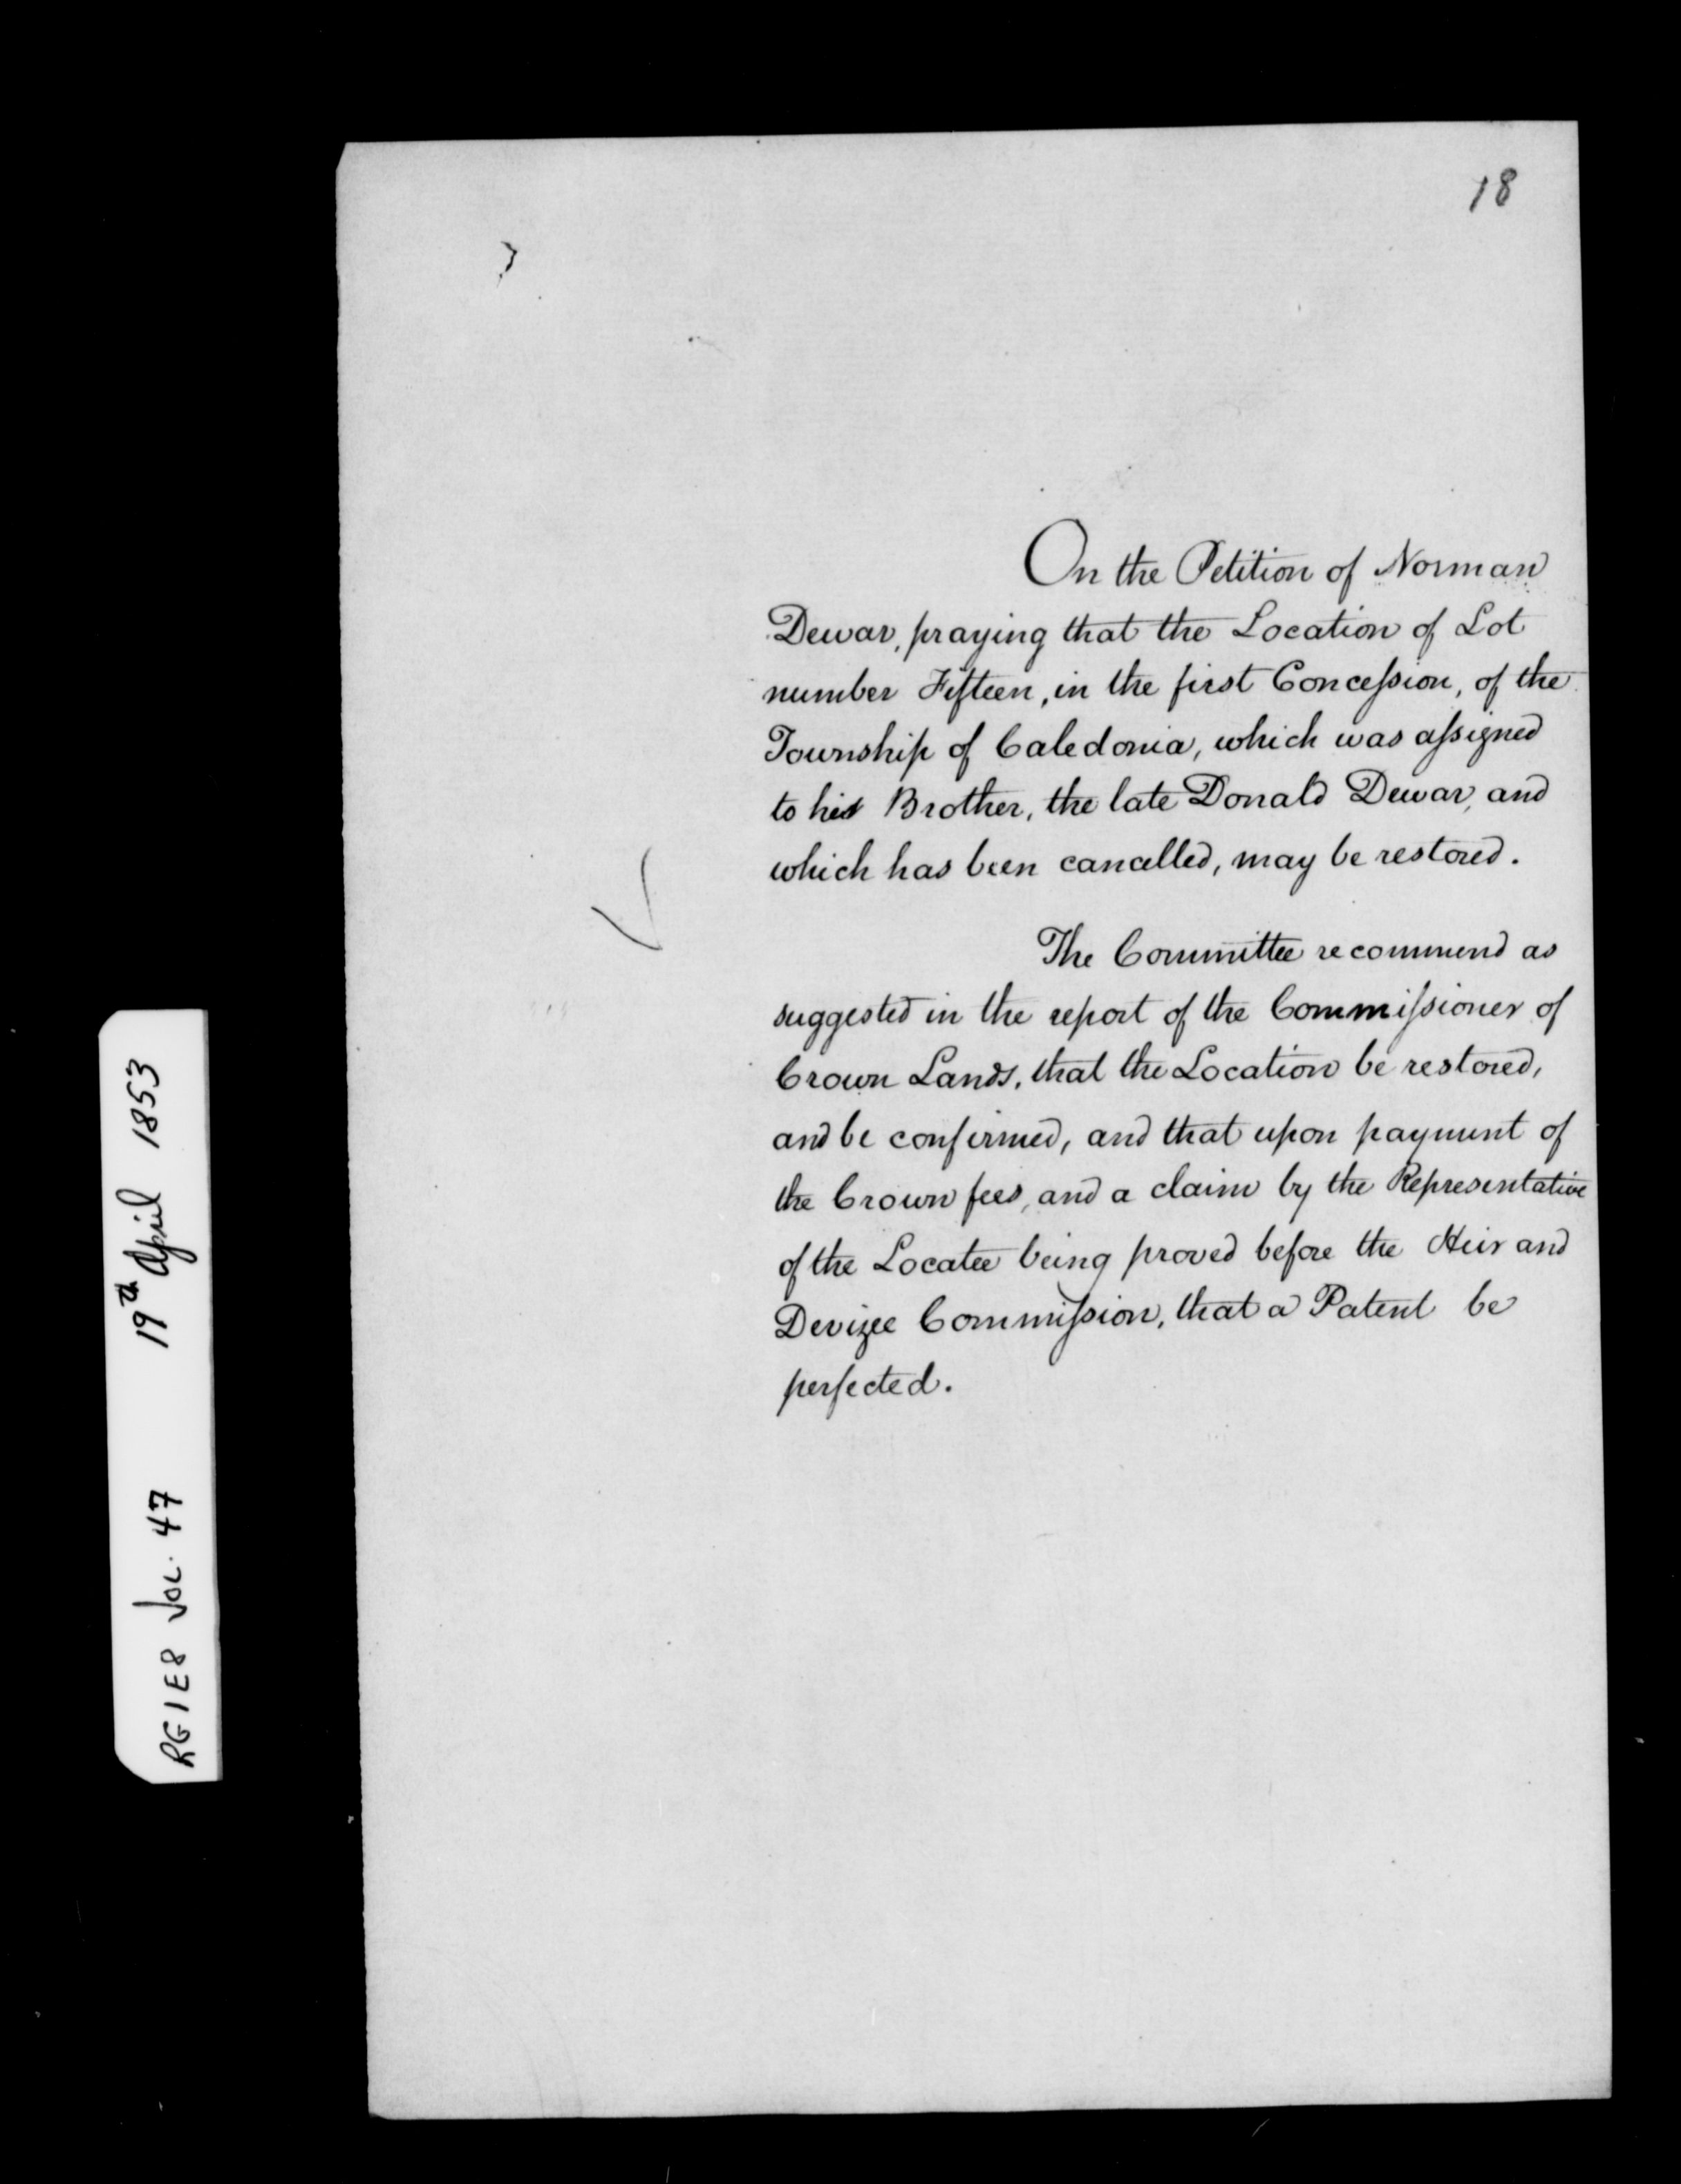 18
On the Petition of Norman
Dewar, praying that the Location of Lot
number Fifteen, in the first Concession, of the
Township of Caledonia, which was assigned
to his Brother, the late Donald Dewar, and
which has been cancelled, may be restored.
The Committee recommend as
suggested in the report of the Commissioner of
Crown Lands, that the Location be restored,
and be confirmed, and that upon payment of
the Crown fees, and a claim by the Representative
of the Locatee being proved before the Heir and
Devizee Commission, that a Patent be
perfected.
RG1E8 Vol. 47 19th April 1853